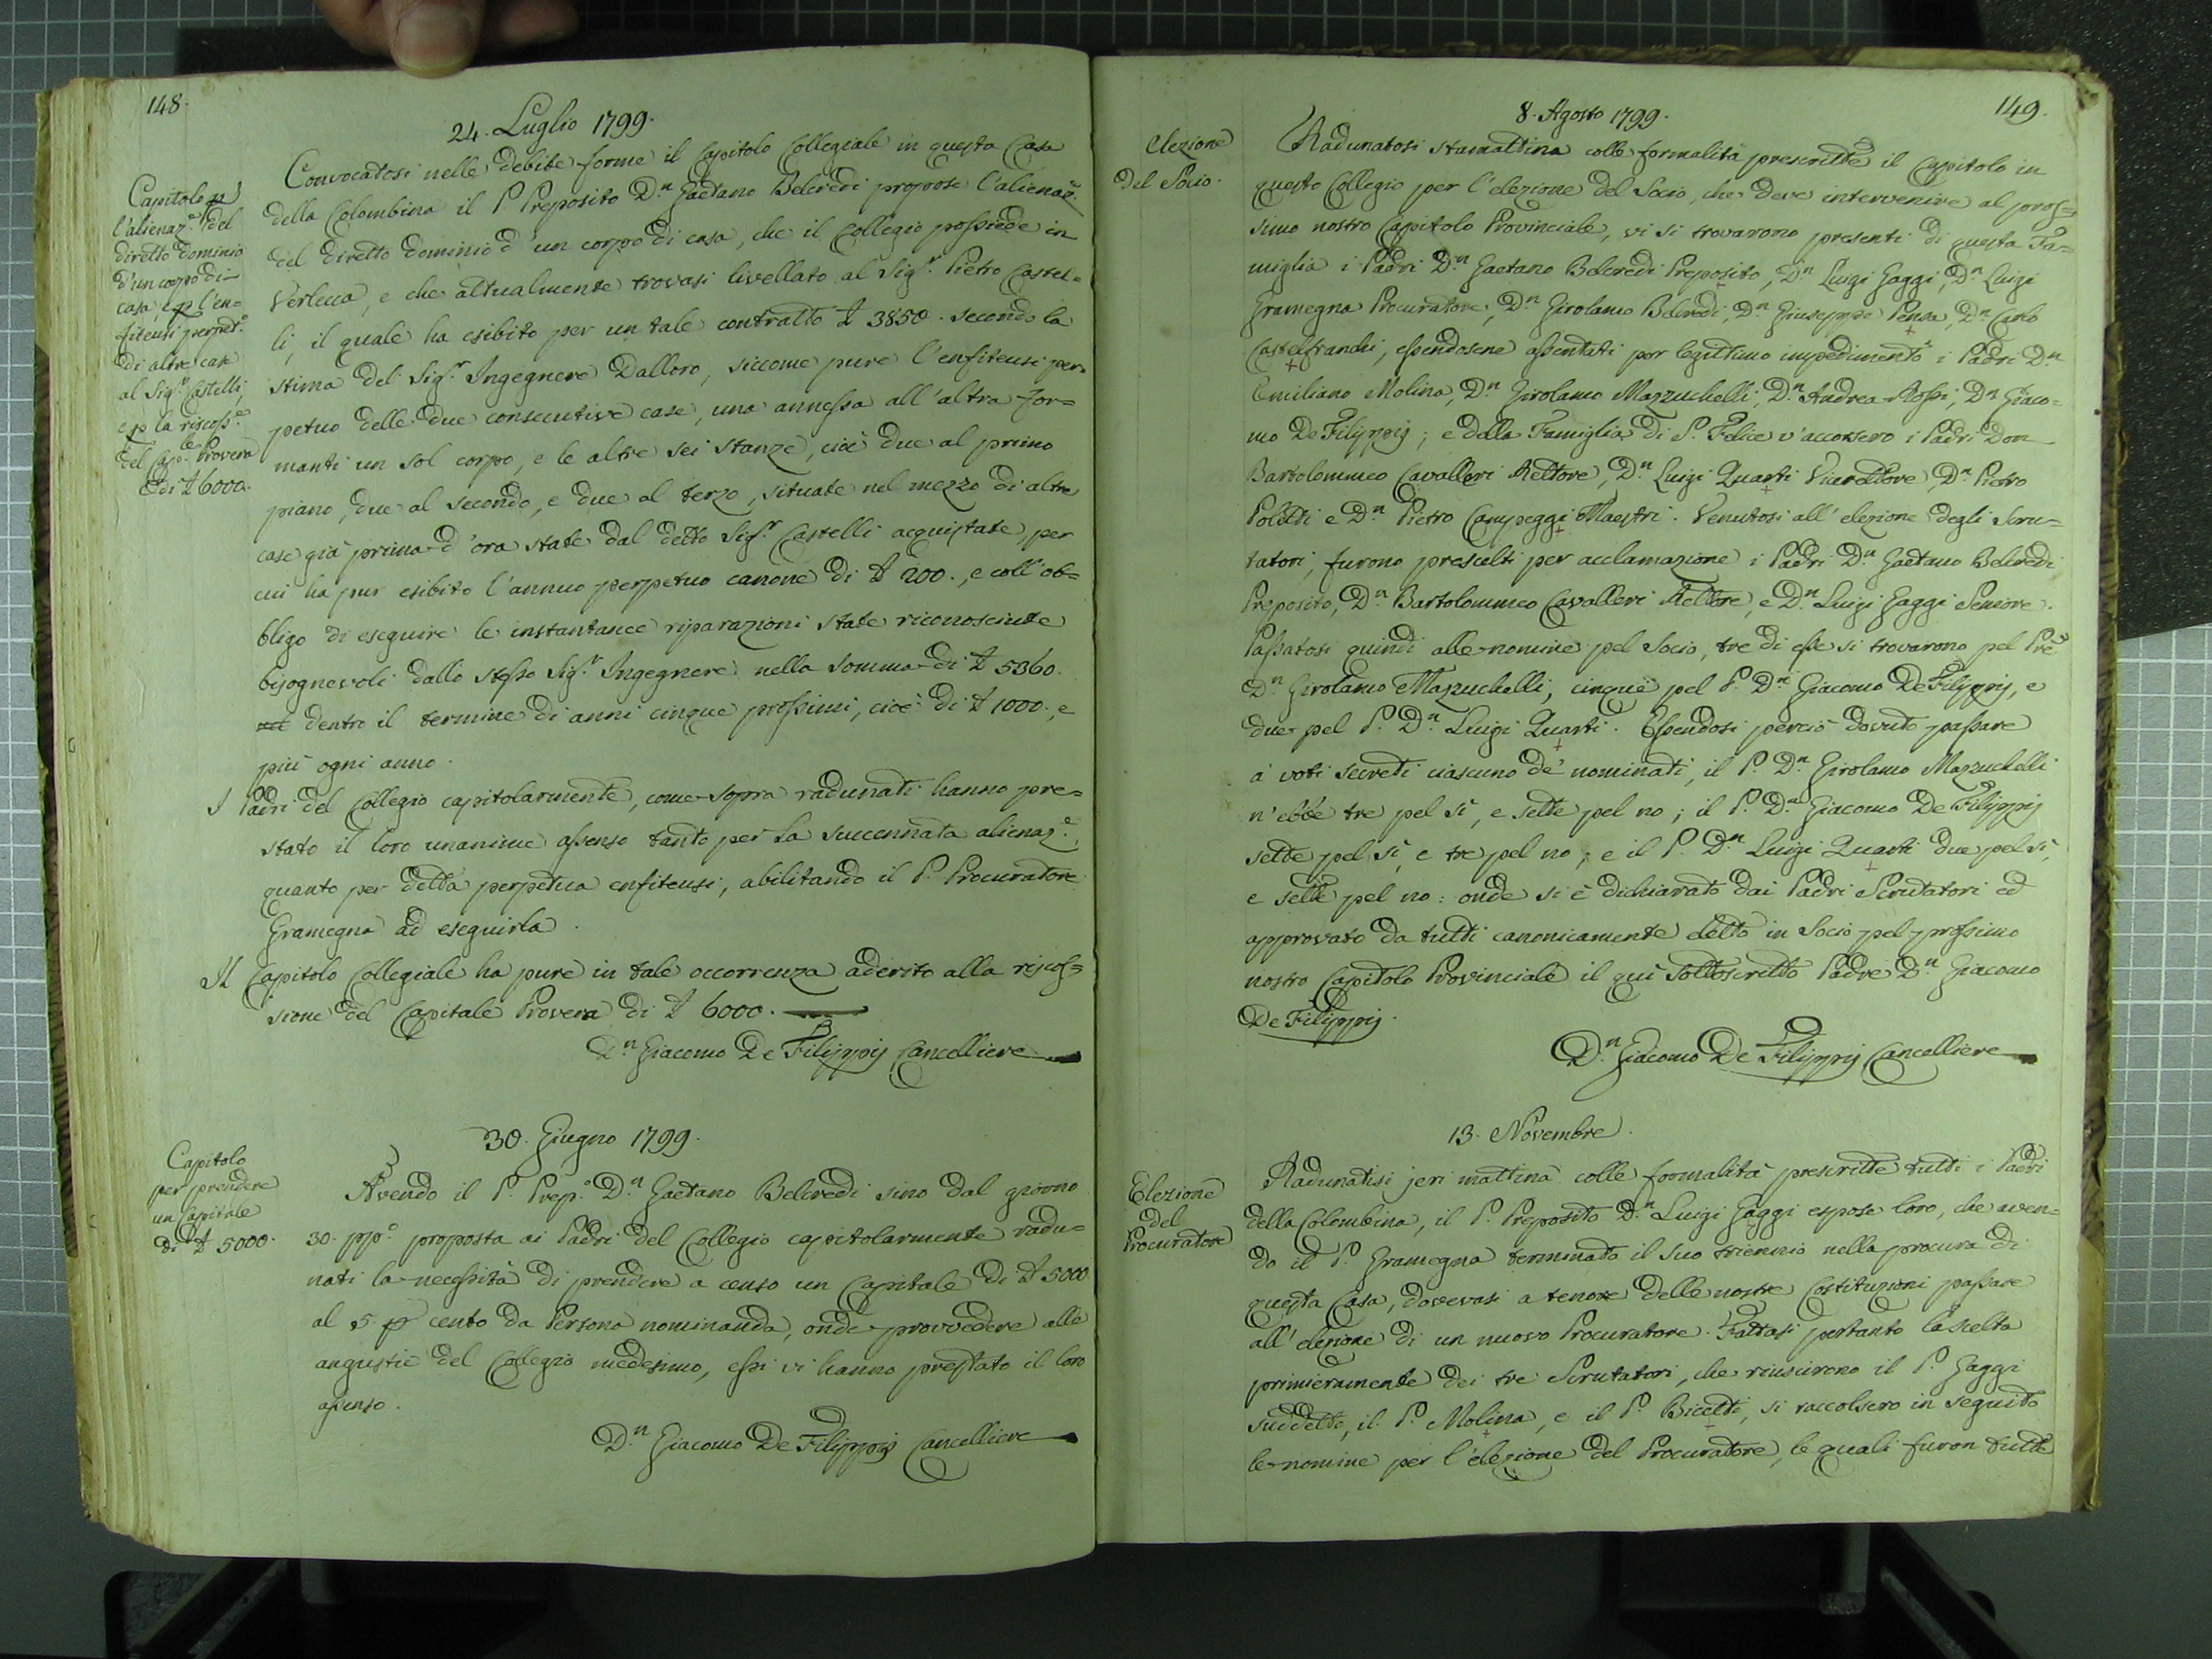 148.
24. Luglio 1799.
Capitolo p
l'alienaz.e del
diretto dominio
d'un corpo di
casa, e p l'en=
fiteusi perpet.a
di altre case
al Sig.r Castelli,
e p la riscoss.e
del Cap.le Provera
di £ 6000.
Convocatosi nelle debite forme il Capitolo Collegiale in questa Casa
della Colombina il P. Preposito D.n Gaetano Belcredi propose l'alienaz.e
del diretto dominio d'un corpo di casa, che il Collegio possiede in
Verlecca, e che attualmente trovasi livellato al Sig.r Pietro Castel=
li, il quale ha esibito per un tale contratto £ 3850. secondo la
stima del Sig.r Ingegnere Dalloro, siccome pure l'enfiteusi per=
petuo delle due consecutive case, una annessa all'altra for=
manti un sol corpo, e le altre sei stanze, cioè due al primo
piano, due al secondo, e due al terzo, situate nel mezzo di altre
case già prima d'ora state dal detto Sig.r Castelli acquistate, per
cui ha pur esibito l'annuo perpetuo canone di £ 200., e coll'ob=
bligo di eseguire le instantanee riparazioni state riconosciute
bisognevoli dallo stesso Sig.r Ingegnere nella somma di £ 5360.
dentro il termine di anni cinque prossimi, cioè di £ 1000., e
più ogni anno.
I Padri del Collegio capitolarmente, come sopra radunati hanno pre=
stato il loro unanime assenso tanto per la succennata alienaz.e,
quanto per detta perpetua enfiteusi, abilitando il P. Procuratore
Gramegna ad eseguirla.
Il Capitolo Collegiale ha pure in tale occorrenza aderito alla riscos=
sione del Capitale Provera di £ 6000.
D.n Giacomo De Filippis Cancelliere
30. Giugno 1799.
Capitolo
per prendere
un Capitale
di £ 5000.
Avendo il P. Prep.o D.n Gaetano Belcredi sino dal giorno
30. ppo. proposta ai Padri del Collegio capitolarmente radu=
nati la necessità di prendere a censo un Capitale di £ 5000
al 5. p cento da Persona nominanda, onde provvedere alle
angustie del Collegio medesimo, essi vi hanno prestato il loro
assenso.
D.n Giacomo De Filippis Cancelliere
149.
8. Agosto 1799.
Elezione
del Socio.
Radunatosi stamattina colle formalità prescritte il Capitolo in
questo Collegio per l'elezione del Socio, che deve intervenire al pros=
simo nostro Capitolo Provinciale, vi si trovarono presenti di questa Fa=
miglia i Padri D.n Gaetano Belcredi Preposito, D.n Luigi Gaggi, D.n Luigi
Gramegna Procuratore, D.n Girolamo Belcredi, D.n Giuseppe Pensa, D.n Carlo
Castelfranchi, essendosene assentati per legittimo impedimento i Padri D.n
Emiliano Molina, D.n Girolamo Mazzuchelli, D.n Andrea Rossi, D.n Giaco=
mo De Filippis; e della Famiglia di S. Felice v'accorsero i Padri Don
Bartolommeo Cavalleri Rettore, D.n Luigi Quarti Vicerettore, D.n Pietro
Poletti e D.n Pietro Campeggi Maestri. Venutosi all'elezione degli Scru=
tatori, furono prescelti per acclamazione i Padri D.n Gaetano Belcredi
Preposito, D.n Bartolommeo Cavalleri Rettore, e D.n Luigi Gaggi Seniore.
Passatosi quindi alle nomine pel Socio, tre di esse si trovarono pel Pre
D.n Girolamo Mazzuchelli, cinque pel P. D.n Giacomo De Filippis, e
due pel P. D.n Luigi Quarti. Essendosi perciò dovuto passare
a' voti secreti ciascuno de' nominati, il P. D.n Girolamo Mazzuchelli
n'ebbe tre pel sì, e sette pel no; il P. D.n Giacomo De Filippis
sette pel sì, e tre pel no; e il P. D.n Luigi Quarti due pel sì,
e sette pel no: onde si è dichiarato dai Padri Scrutatori ed
approvato da tutti canonicamente eletto in Socio pel prossimo
nostro Capitolo Provinciale il quì sottoscritto Padre D.n Giacomo
De Filippis.
D.n Giacomo De Filippis Cancelliere
13. Novembre.
Elezione
del
Procuratore
Radunatisi jeri mattina colle formalità prescritte tutti i Padri
della Colombina, il P. Preposito D.n Luigi Gaggi espose loro, che aven=
do il P. Gramegna terminato il suo triennio nella procura di
questa Casa, dovevasi a tenore delle nostre Costituzioni passare
all'elezione di un nuovo Procuratore. Fattasi pertanto la scelta
primieramente dei tre Scrutatori, che riuscirono il P. Gaggi
suddetto, il P. Molina, e il P. Bicetti, si raccolsero in seguito
le nomine per l'elezione del Procuratore, le quali furon tutte